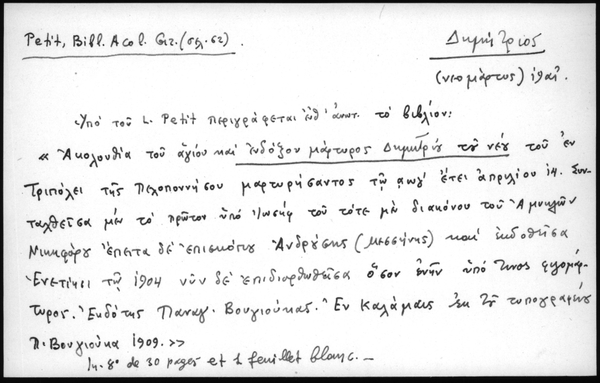 Petit, Bibl. Acol. Gr. (σελ. 62).
Δημήτριος
(νεομάρτυς)
Ὑπό τοῦ L. Petit περιγράφεται ἔνθ' ἀνωτ. τό βιβλίον:
« Ἀκολουθία τοῦ ἁγίου καί ἐνδόξου μάρτυρος Δημητρίου τοῦ νέου τοῦ ἐν
Τριπόλει τῆς Πελοποννήσου μαρτυρήσαντος τῷ αωγ' ἔτει ἀπριλίου 14. Συν-
ταχθεῖσα μέν τό πρῶτον ὑπό Ἰωσήφ τοῦ τότε μέν διακόνου τοῦ Ἀμυκλῶν
Νικηφόρου ἔπειτα δέ ἐπισκόπου Ἀνδρούσης (Μεσσήνης) καί ἐκδοθεῖσα
Ἐνετίησι τῷ 1904 νῦν δέ ἐπιδιορθωθεῖσα ὅσον ἐνῆν ὑπό τινος φιλομάρ-
τυρος. Ἐκδότης Παναγ. Βουγιούκας. Ἐν Καλάμαις ἐκ τοῦ τυπογραφείου
Π. Βουγιούκα 1909. >>
In. 8° de 30 pages et 1 feuillet blanc. —